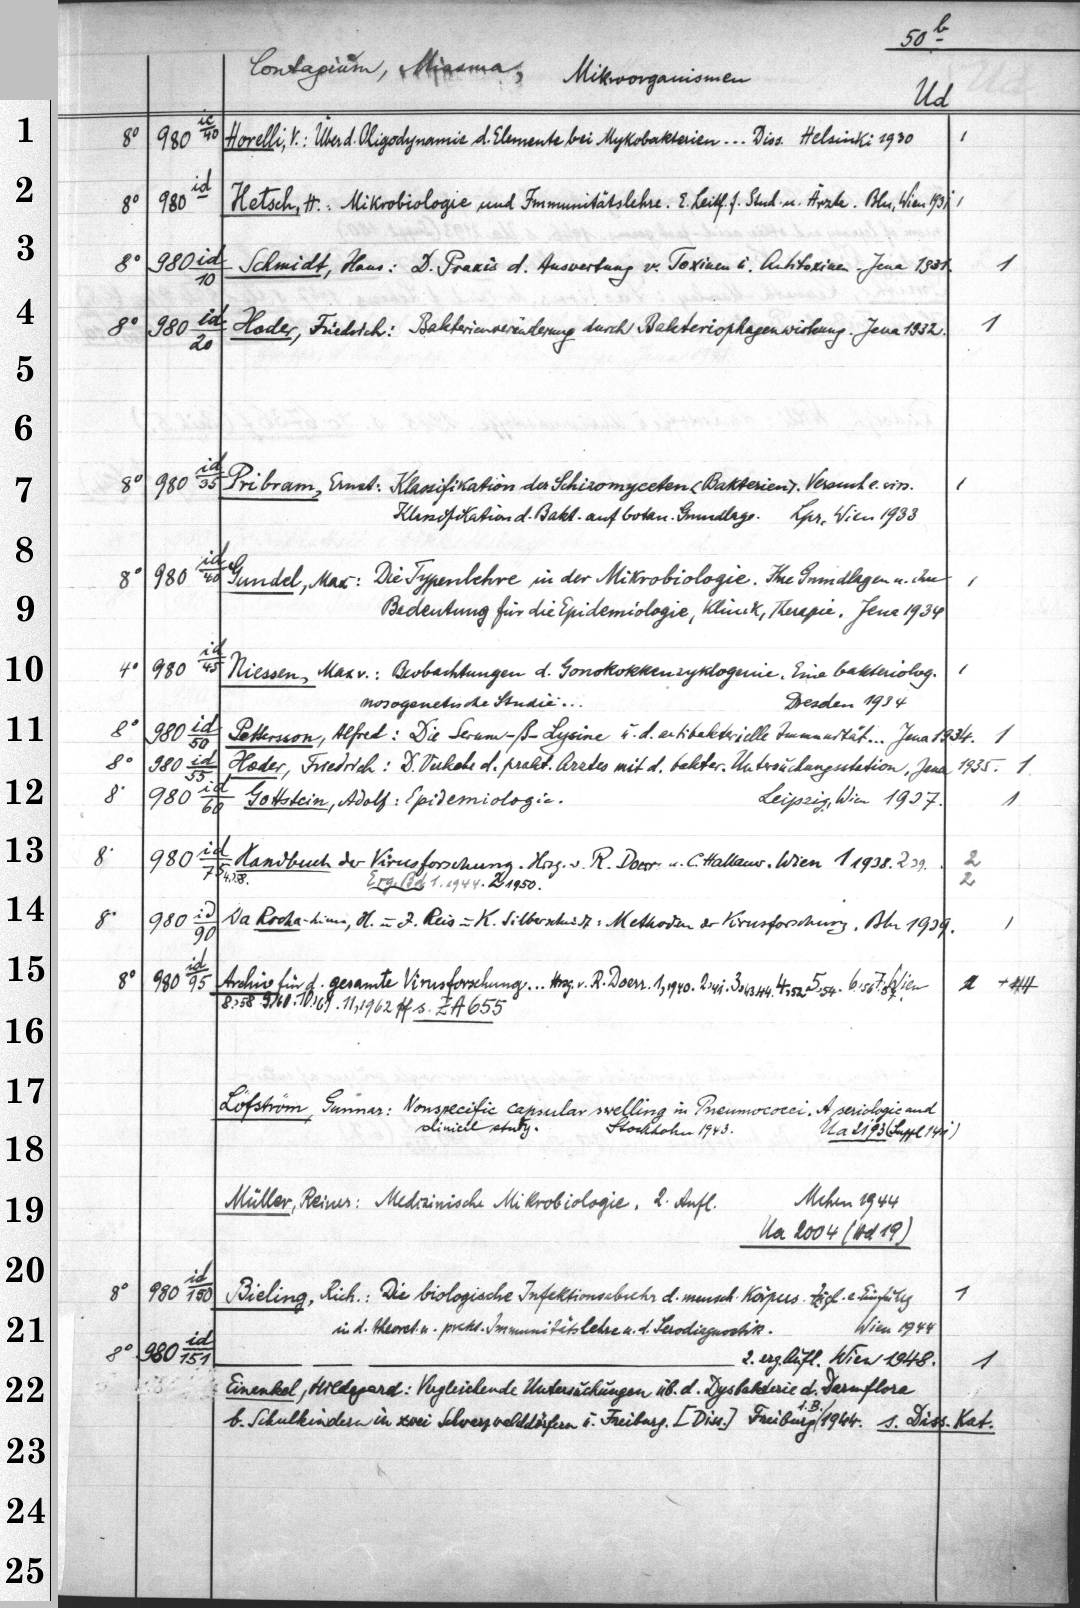 50 b
Contagium, Miasma, Mikroorganismen
Ud
1 8° 980 ic/40 Horelli, V.: Über d. Oligodynamie d. Elemente bei Mykobakterien... Diss. Helsinki 1930 1
2 8° 980 id Hetsch, H.: Mikrobiologie und Immunitätslehre. E. Leitf. f. Stud. u. Ärzte. Bln, Wien 1931 1
3 8° 980 id/10 Schmidt, Hans: D. Praxis d. Auswertung v. Toxinen u. Antitoxinen. Jena 1931. 1
4 8° 980 id/20 Hoder, Friedrich: Bakterienveränderung durch Bakteriophagenwirkung. Jena 1932. 1
5
6
7 8° 980 id/35 Pribram, Ernst: Klassifikation der Schizomyceten (Bakterien). Versuch e. wiss. 1
Klassifikation d. Bakt. auf botan. Grundlage. Lpz, Wien 1933
8
8° 980 id/40 Gundel, Max: Die Typenlehre in der Mikrobiologie. Ihre Grundlagen u. ihre 1
9 Bedeutung für die Epidemiologie, Klinik, Therapie. Jena 1934
10 4° 980 id/45 Niessen, Max v.: Beobachtungen d. Gonokokkenzyklogenie. Eine bakteriolog. 1
nosogenetische Studie... Dresden 1934
11 8° 980 id/50 Pettersson, Alfred: Die Serum-β-Lysine u. d. antibakterielle Immunität... Jena 1934. 1
8° 980 id/55 Hoder, Friedrich: D. Verkehr d. prakt. Arztes mit d. bakter. Untersuchungsstation. Jena 1935. 1
12 8° 980 id/60 Gottstein, Adolf: Epidemiologie. Leipzig, Wien 1937. 1
13 8° 980 id/75 Handbuch der Virusforschung. Hrsg. v. R. Doerr u. C. Hallauer. Wien 1 1938. 2 39. 2
Erg. Bd 1. 1944. 2 1950. 2
14 8° 980 id/90 Da Rocha-Lima, H. u. J. Reis u. K. Silberschmidt: Methoden der Virusforschung. Bln 1939. 1
15 8° 980 id/95 Archiv für d. gesamte Virusforschung... Hrsg. v. R. Doerr. 1,1940. 2,41. 3,43.44. 4,52 5,54. 6,56 7,57 Wien
8,58 9,60. 10,61. 11,1962 ff s. ZA 655
16
17 Löfström, Gunnar: Nonspecific capsular swelling in Pneumococci. A serologic and
clinical study. Stockholm 1943. Ua 2193 (Suppl 141)
18
19 Müller, Reiner: Medizinische Mikrobiologie. 2. Aufl. Mchen 1944
Ua 2004 (Ud 19)
20 8° 980 id/150 Bieling, Rich.: Die biologische Infektionsabwehr d. mensch. Körpers. Zugl. e. Einführg 1
21 in d. theoret. u. prakt. Immunitätslehre u. d. Serodiagnostik. Wien 1944
8° 980 id/151 2. erg. Aufl. Wien 1948. 1
22 Einenkel, Hildegard: Vergleichende Untersuchungen üb. d. Dysbakterie d. Darmflora
b. Schulkindern in zwei Schwarzwalddörfern u. Freiburg. [Diss.] Freiburg i.B. 1944. s. Diss. Kat.
23
24
25